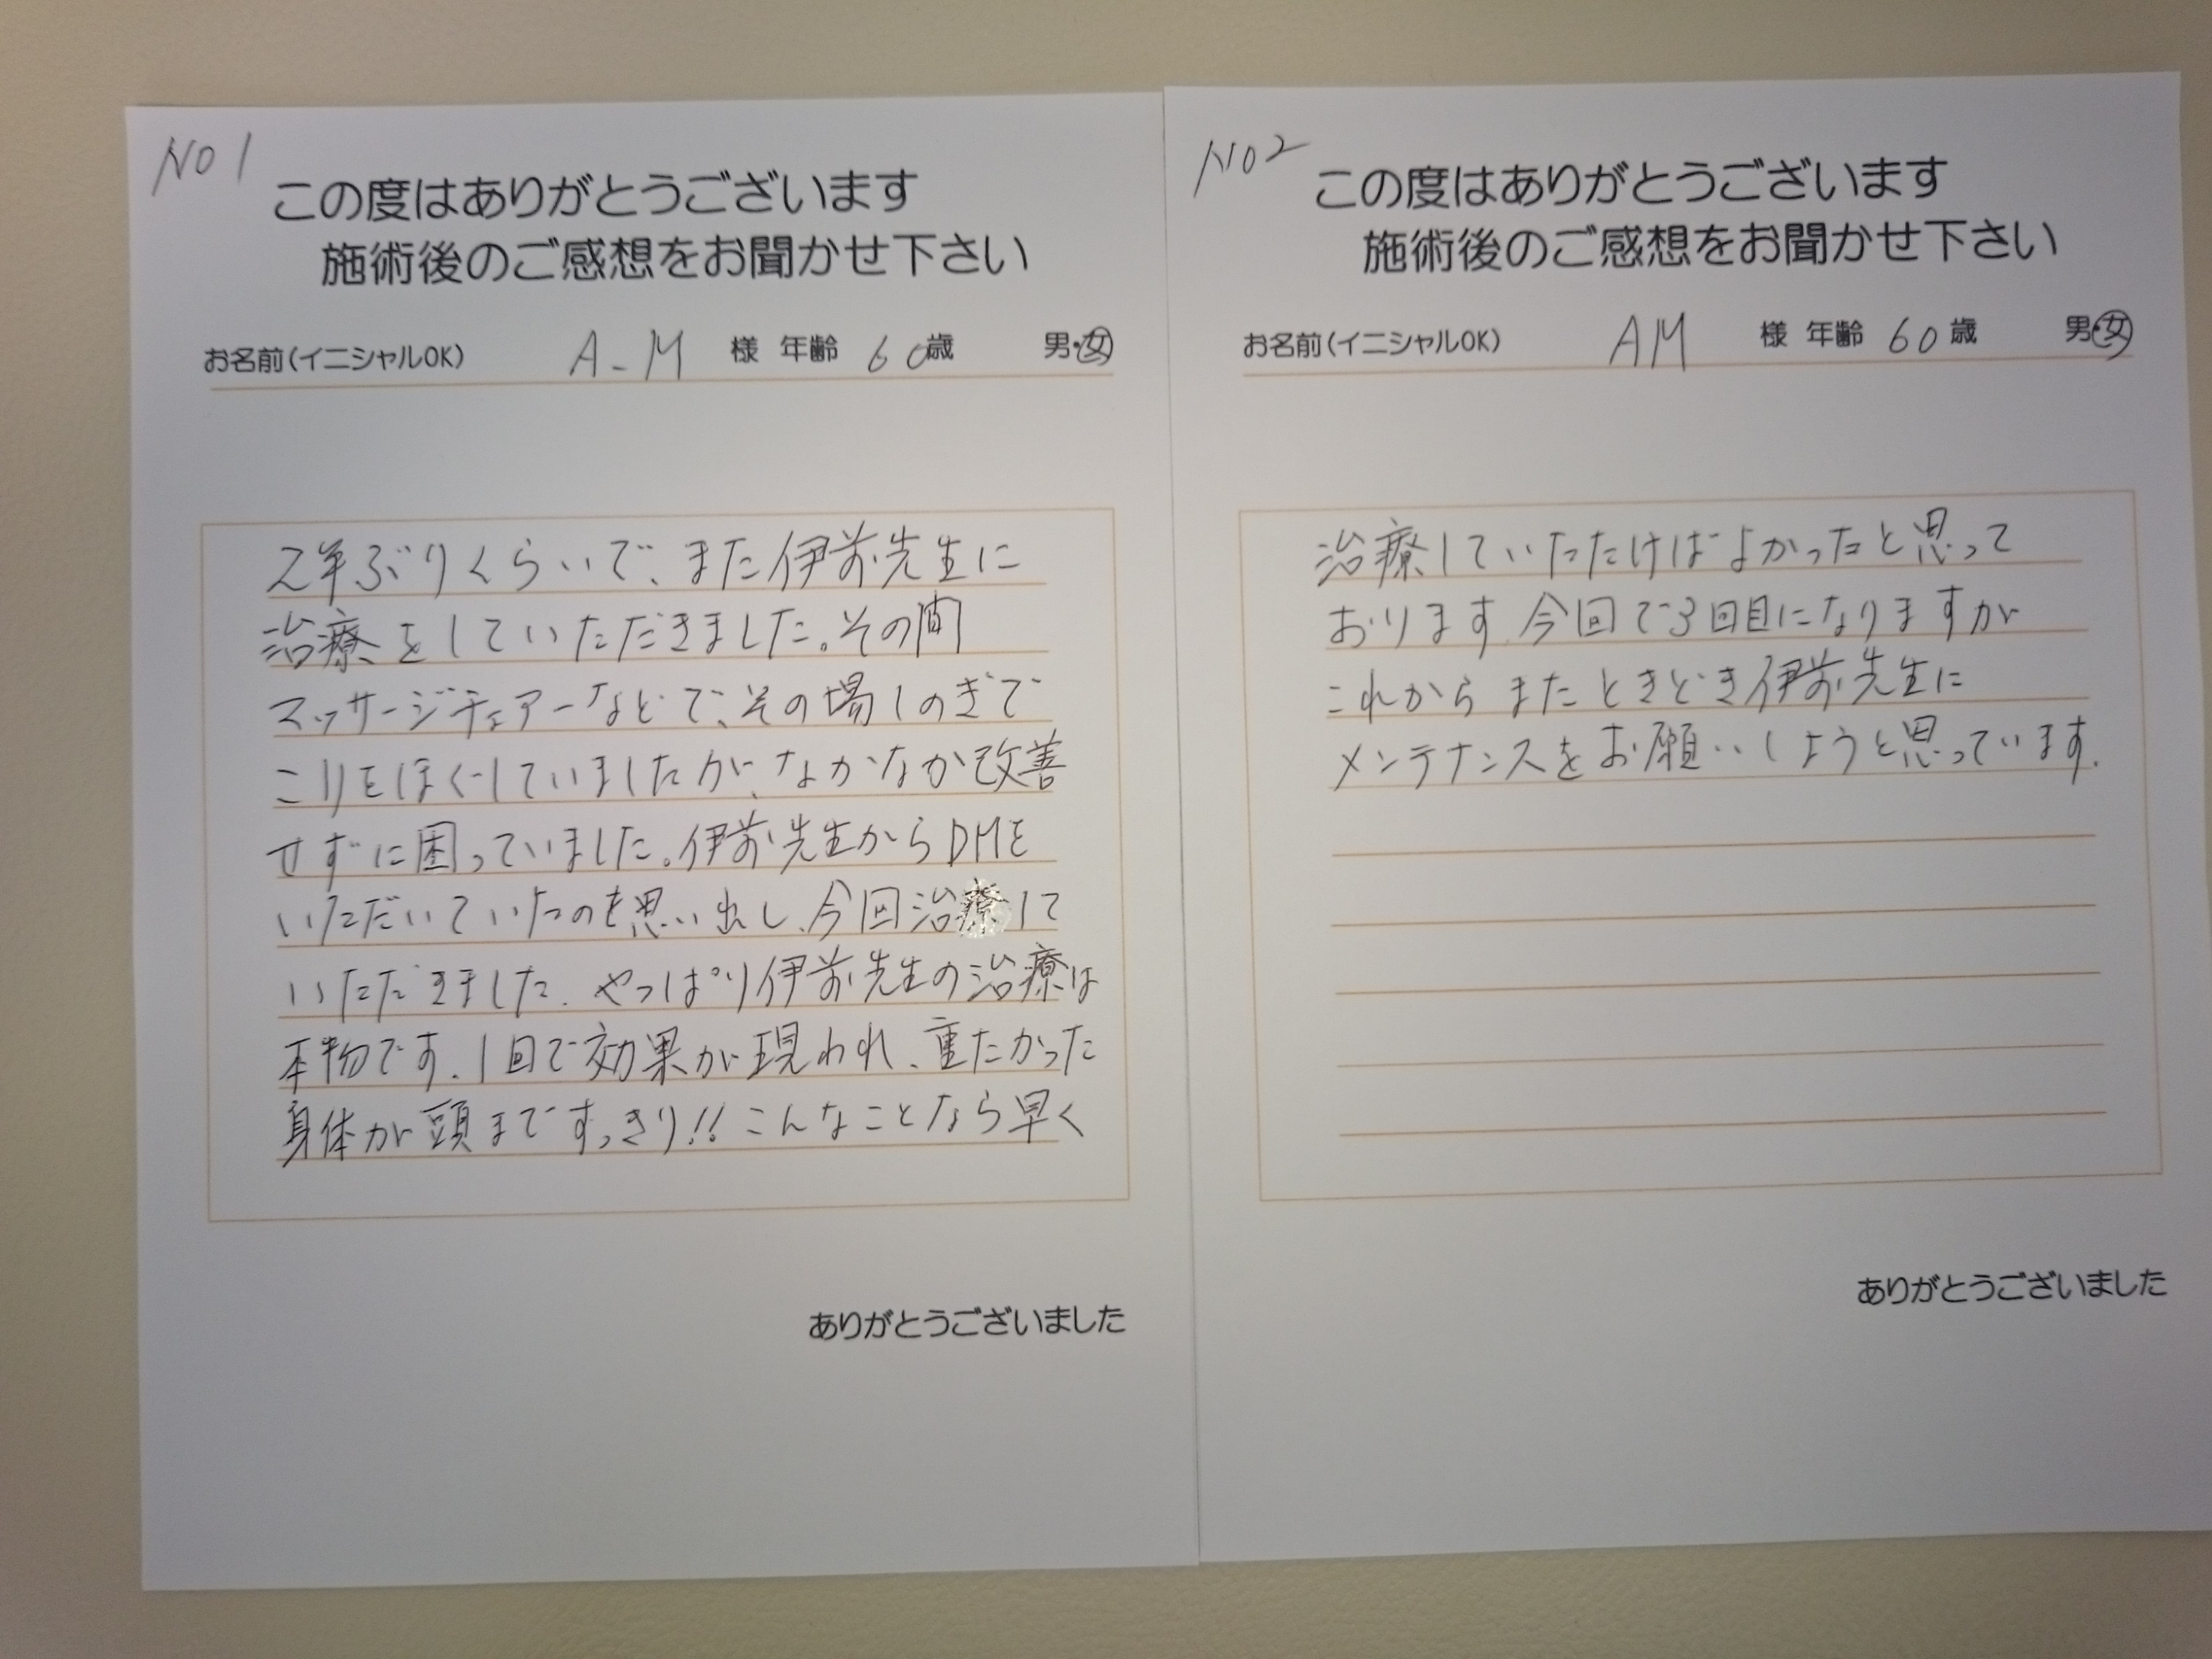 NO 1
この度はありがとうございます
施術後のご感想をお聞かせ下さい
お名前(イニシャルOK) A-M 様 年齢 60歳 男・女
2年ぶりくらいで、また伊前先生に
治療をしていただきました。その間
マッサージチェアーなどで、その場しのぎで
こりをほぐしていましたが、なかなか改善
せずに困っていました。伊前先生からDMを
いただいていたのを思い出し、今回治療して
いただきました。やっぱり伊前先生の治療は
本物です。1回で効果が現われ、重たかった
身体が頭まですっきり!!こんなことなら早く
ありがとうございました
NO2
この度はありがとうございます
施術後のご感想をお聞かせ下さい
お名前(イニシャルOK) AM 様 年齢 60歳 男・女
治療していただけばよかったと思って
おります。今回で3回目になりますが
これから またときどき伊前先生に
メンテナンスをお願いしようと思っています。
ありがとうございました